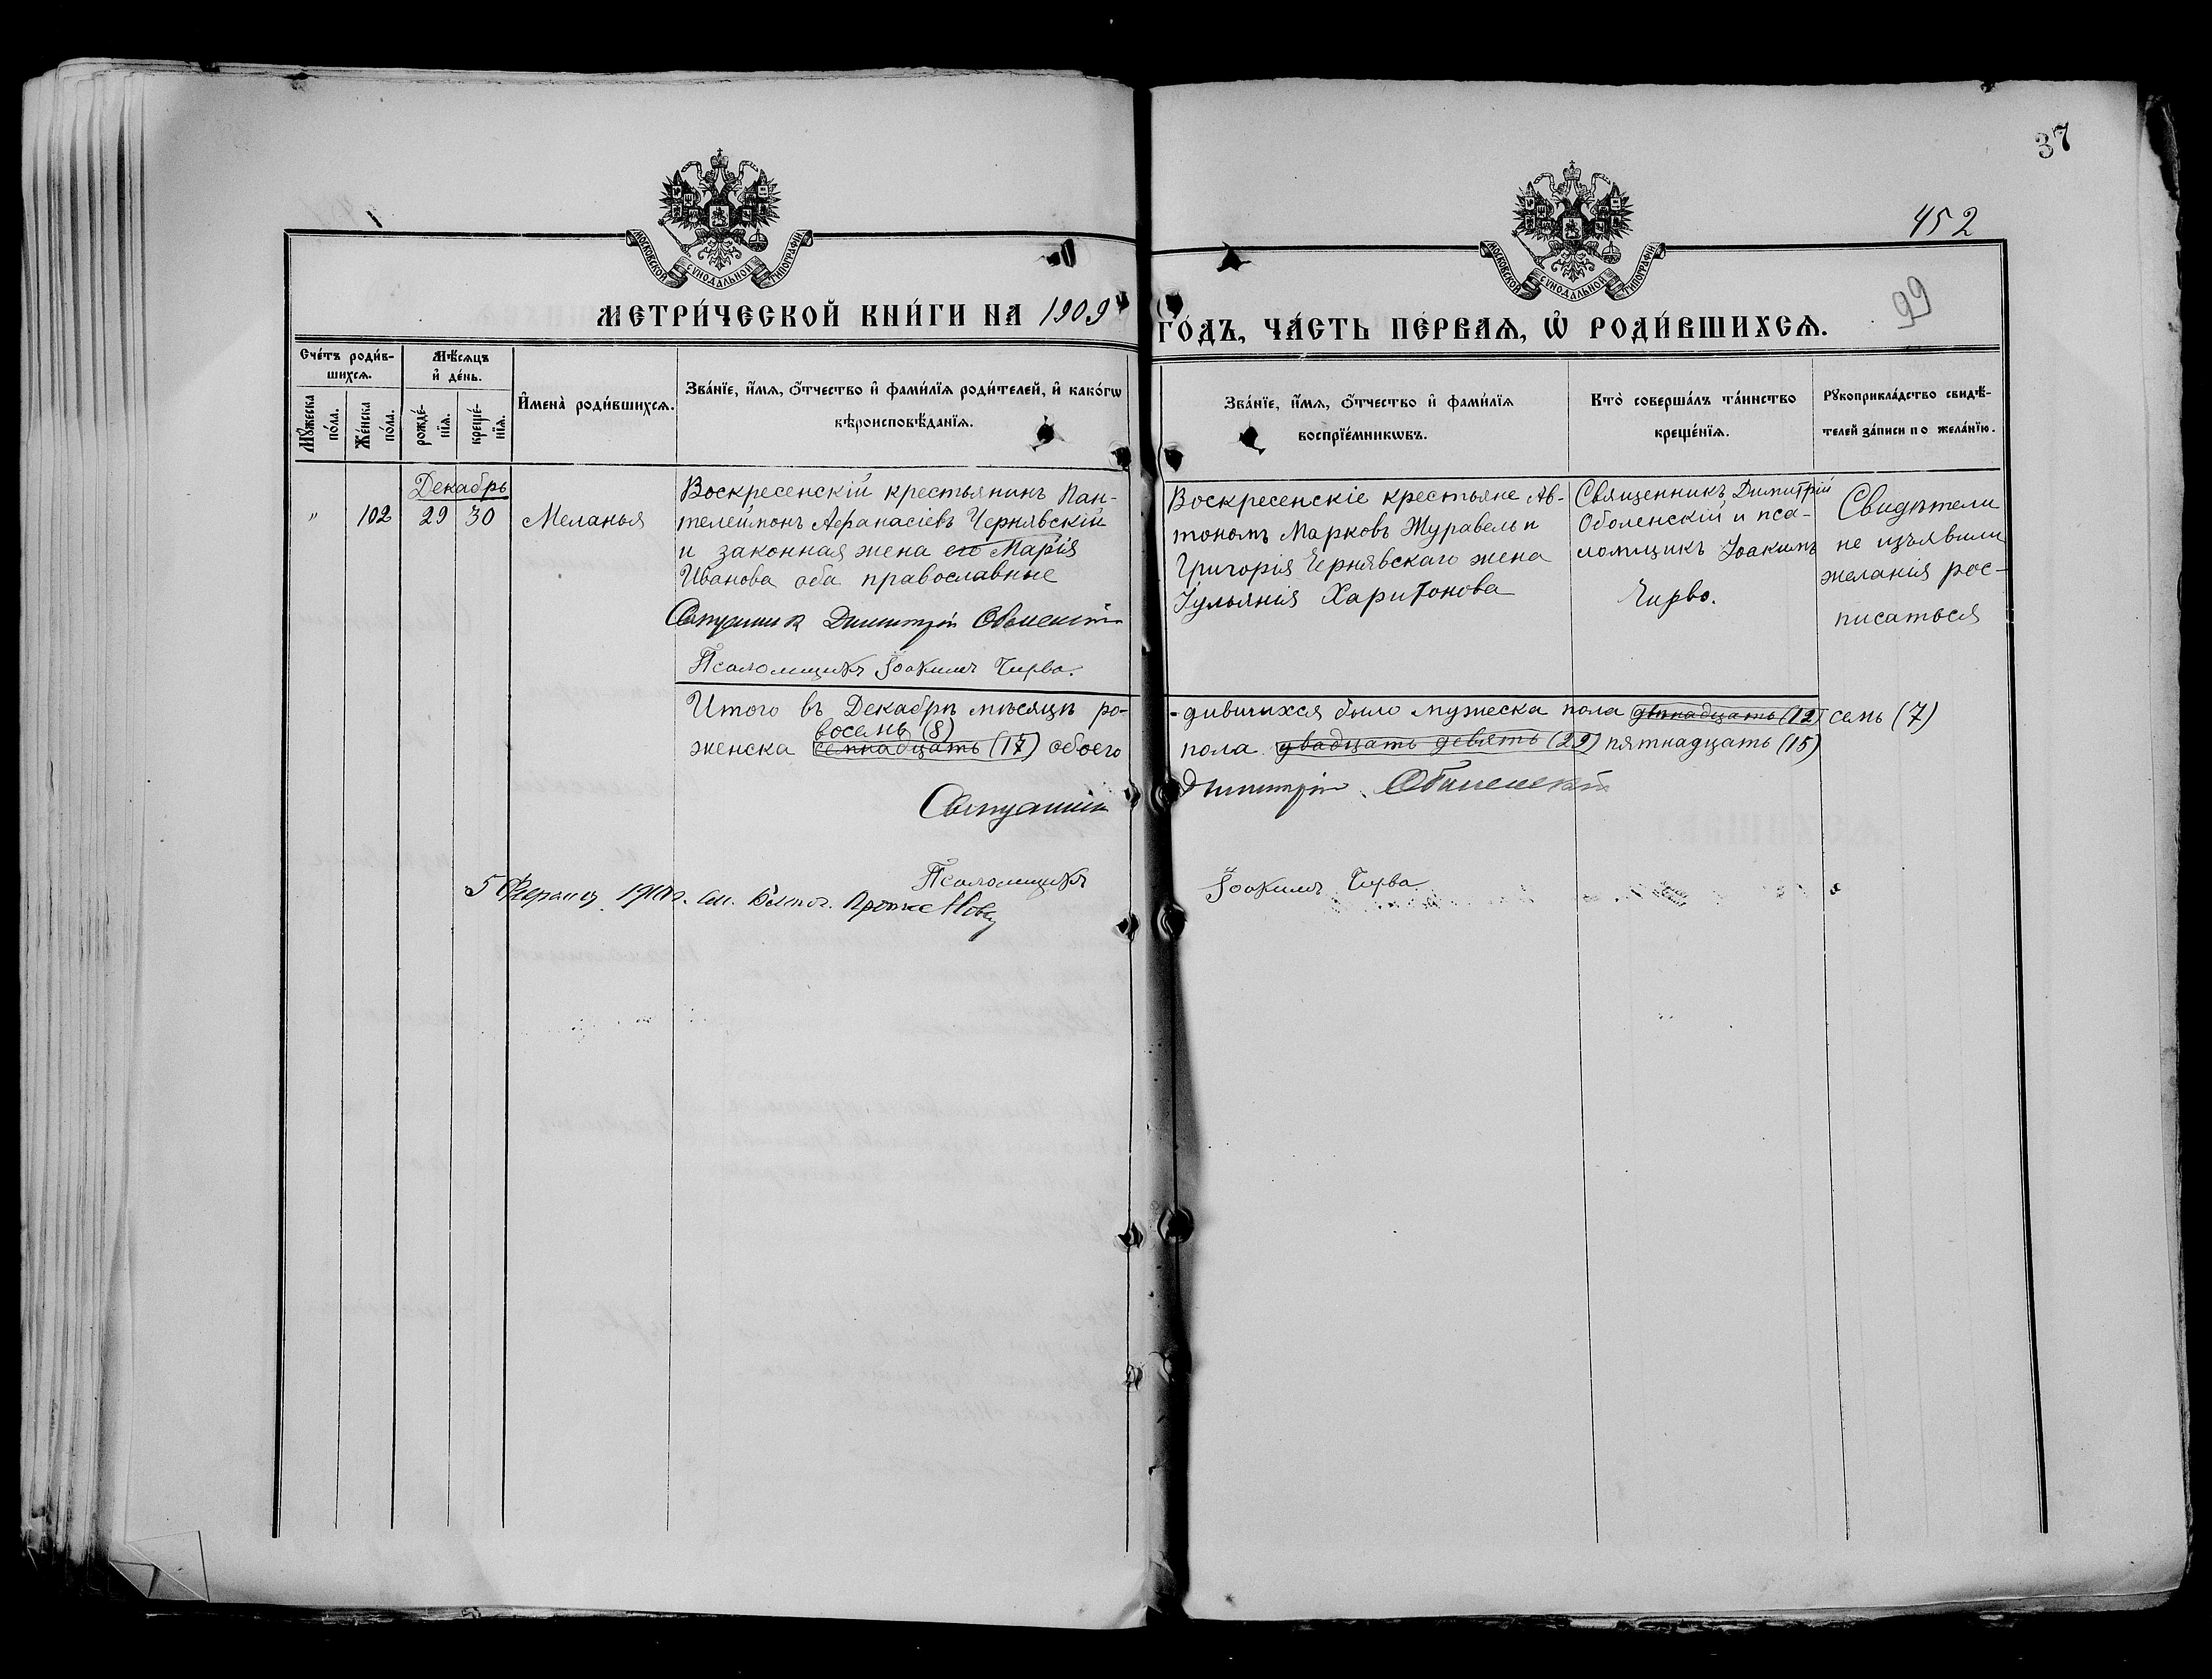 37
452
99
МОСКОВСКОЙ СѴНОДАЛЬНОЙ ТИПОГРАФІИ
МОСКОВСКОЙ СѴНОДАЛЬНОЙ ТИПОГРАФІИ
МЕТРИ́ЧЕСКОЙ КНИ́ГИ НА 1909
ГО́ДЪ, ЧА́СТЬ ПЕ́РВАѦ, Ѡ҆ РОДИ́ВШИХСѦ.
Сче́тъ роди́в-
шихсѧ.
Мꙋ́жеска
по́ла.
Же́нска
по́ла.
Мѣ́сѧцъ
и҆ де́нь.
рожде́-
нїѧ.
креще́-
нїѧ.
И҆мена̀ роди́вшихсѧ.
Зва́нїе, и҆́мѧ, ѻ҆́тчество и҆ фами́лїѧ роди́телей, и҆ како́гѡ
вѣроисповѣ́данїѧ.
Зва́нїе, и҆́мѧ, ѻ҆́тчество и҆ фами́лїѧ
воспрїе́мникѡвъ.
Кто̀ соверша́лъ та́инство
креще́нїѧ.
Рꙋкоприкла́дство свидѣ́-
телей за́писи по жела́нїю.
Декабрь
" 102 29 30 Меланья
Воскресенскій крестьянинъ Пан-
телеймонъ Афанасіевъ Чернявскій
и законная жена его Марія
Иванова оба православные
Священникъ Димитрій Оболенскій
Псаломщикъ Іоакимъ Чирва.
Воскресенскіе крестьяне Ав-
тономъ Марковъ Журавель и
Григорія Чернявскаго жена
Іульянія Харитонова
Священникъ Димитрій
Оболенскій и пса-
ломщикъ Іоакимъ
Чирво.
Свидѣтели
не изъявили
желанія рос-
писаться
Итого въ Декабрѣ мѣсяцѣ ро-
-дившихся было мужеска пола двѣнадцать (12) семь (7)
восемь (8)
женска семнадцать (17) обоего
пола двадцать девять (29) пятнадцать (15)
Священникъ
Димитрій Оболенскій
Псаломщикъ
Іоакимъ Чирва
5 Февраля 1910 г.